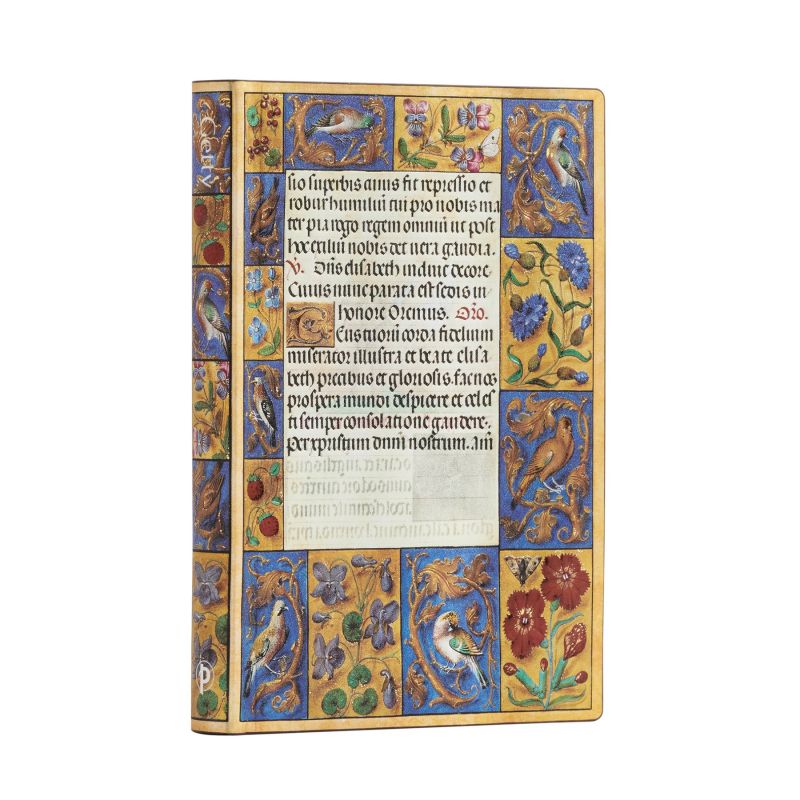 Getty
sio superbis cuius fit repressio et
robur humiliū tui pro nobis ma
ter pia rogo regem omniū ut post
hoc exiliū nobis det uera gaudia.
V. Ora pro nobis elisabeth
Cuius nunc parata est sedis in
honore Oremus. Oro.
Tuorū corda fidelium
miserator illustra et beate elisa
beth precibus et gloriosis. fac nos
prospera mundi despicere et celes
ti semper consolatione gaudere.
Per xpristum dnm̄ nostrum. am̄
p